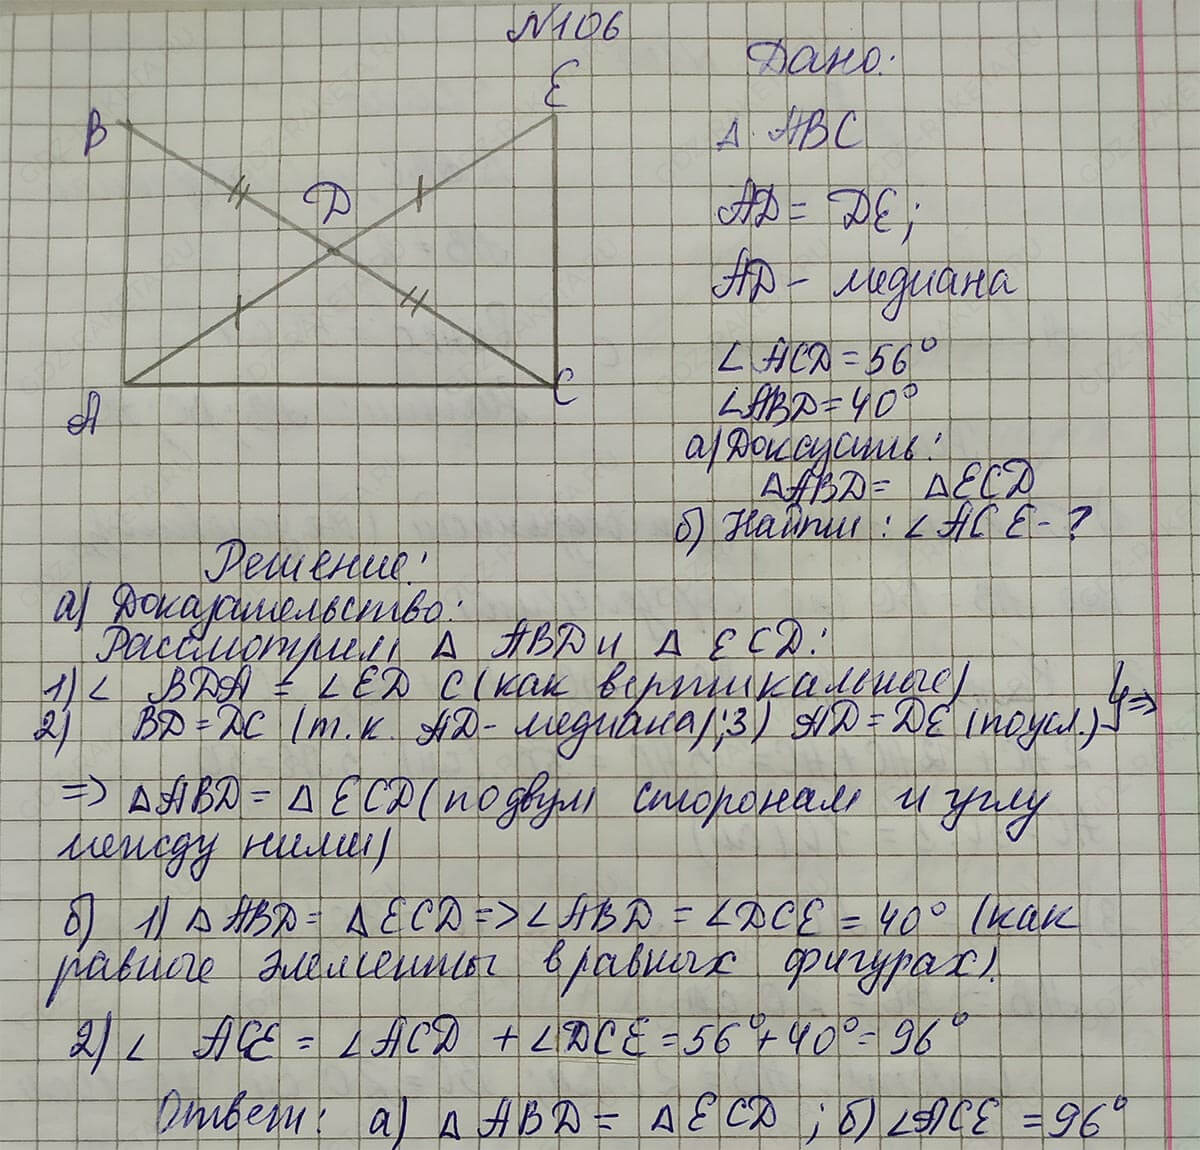 N106
B
E
D
A
C
Дано:
Δ ABC
AD = DE;
AD - медиана
∠ACD = 56°
∠ABD = 40°
а) Доказать:
ΔABD = ΔECD
б) Найти: ∠ACE - ?
Решение:
а) Доказательство:
Рассмотрим Δ ABD и Δ ECD:
1) ∠ BDA = ∠ED C (как вертикальные)
2) BD = DC (т.к. AD - медиана); 3) AD = DE (по усл.) } =>
=> ΔABD = Δ ECD (по двум сторонам и углу
между ними)
б) 1) Δ ABD = Δ ECD => ∠ABD = ∠DCE = 40° (как
равные элементы в равных фигурах).
2) ∠ ACE = ∠ACD + ∠DCE = 56° + 40° = 96°
Ответ: а) Δ ABD = Δ ECD ; б) ∠ACE = 96°